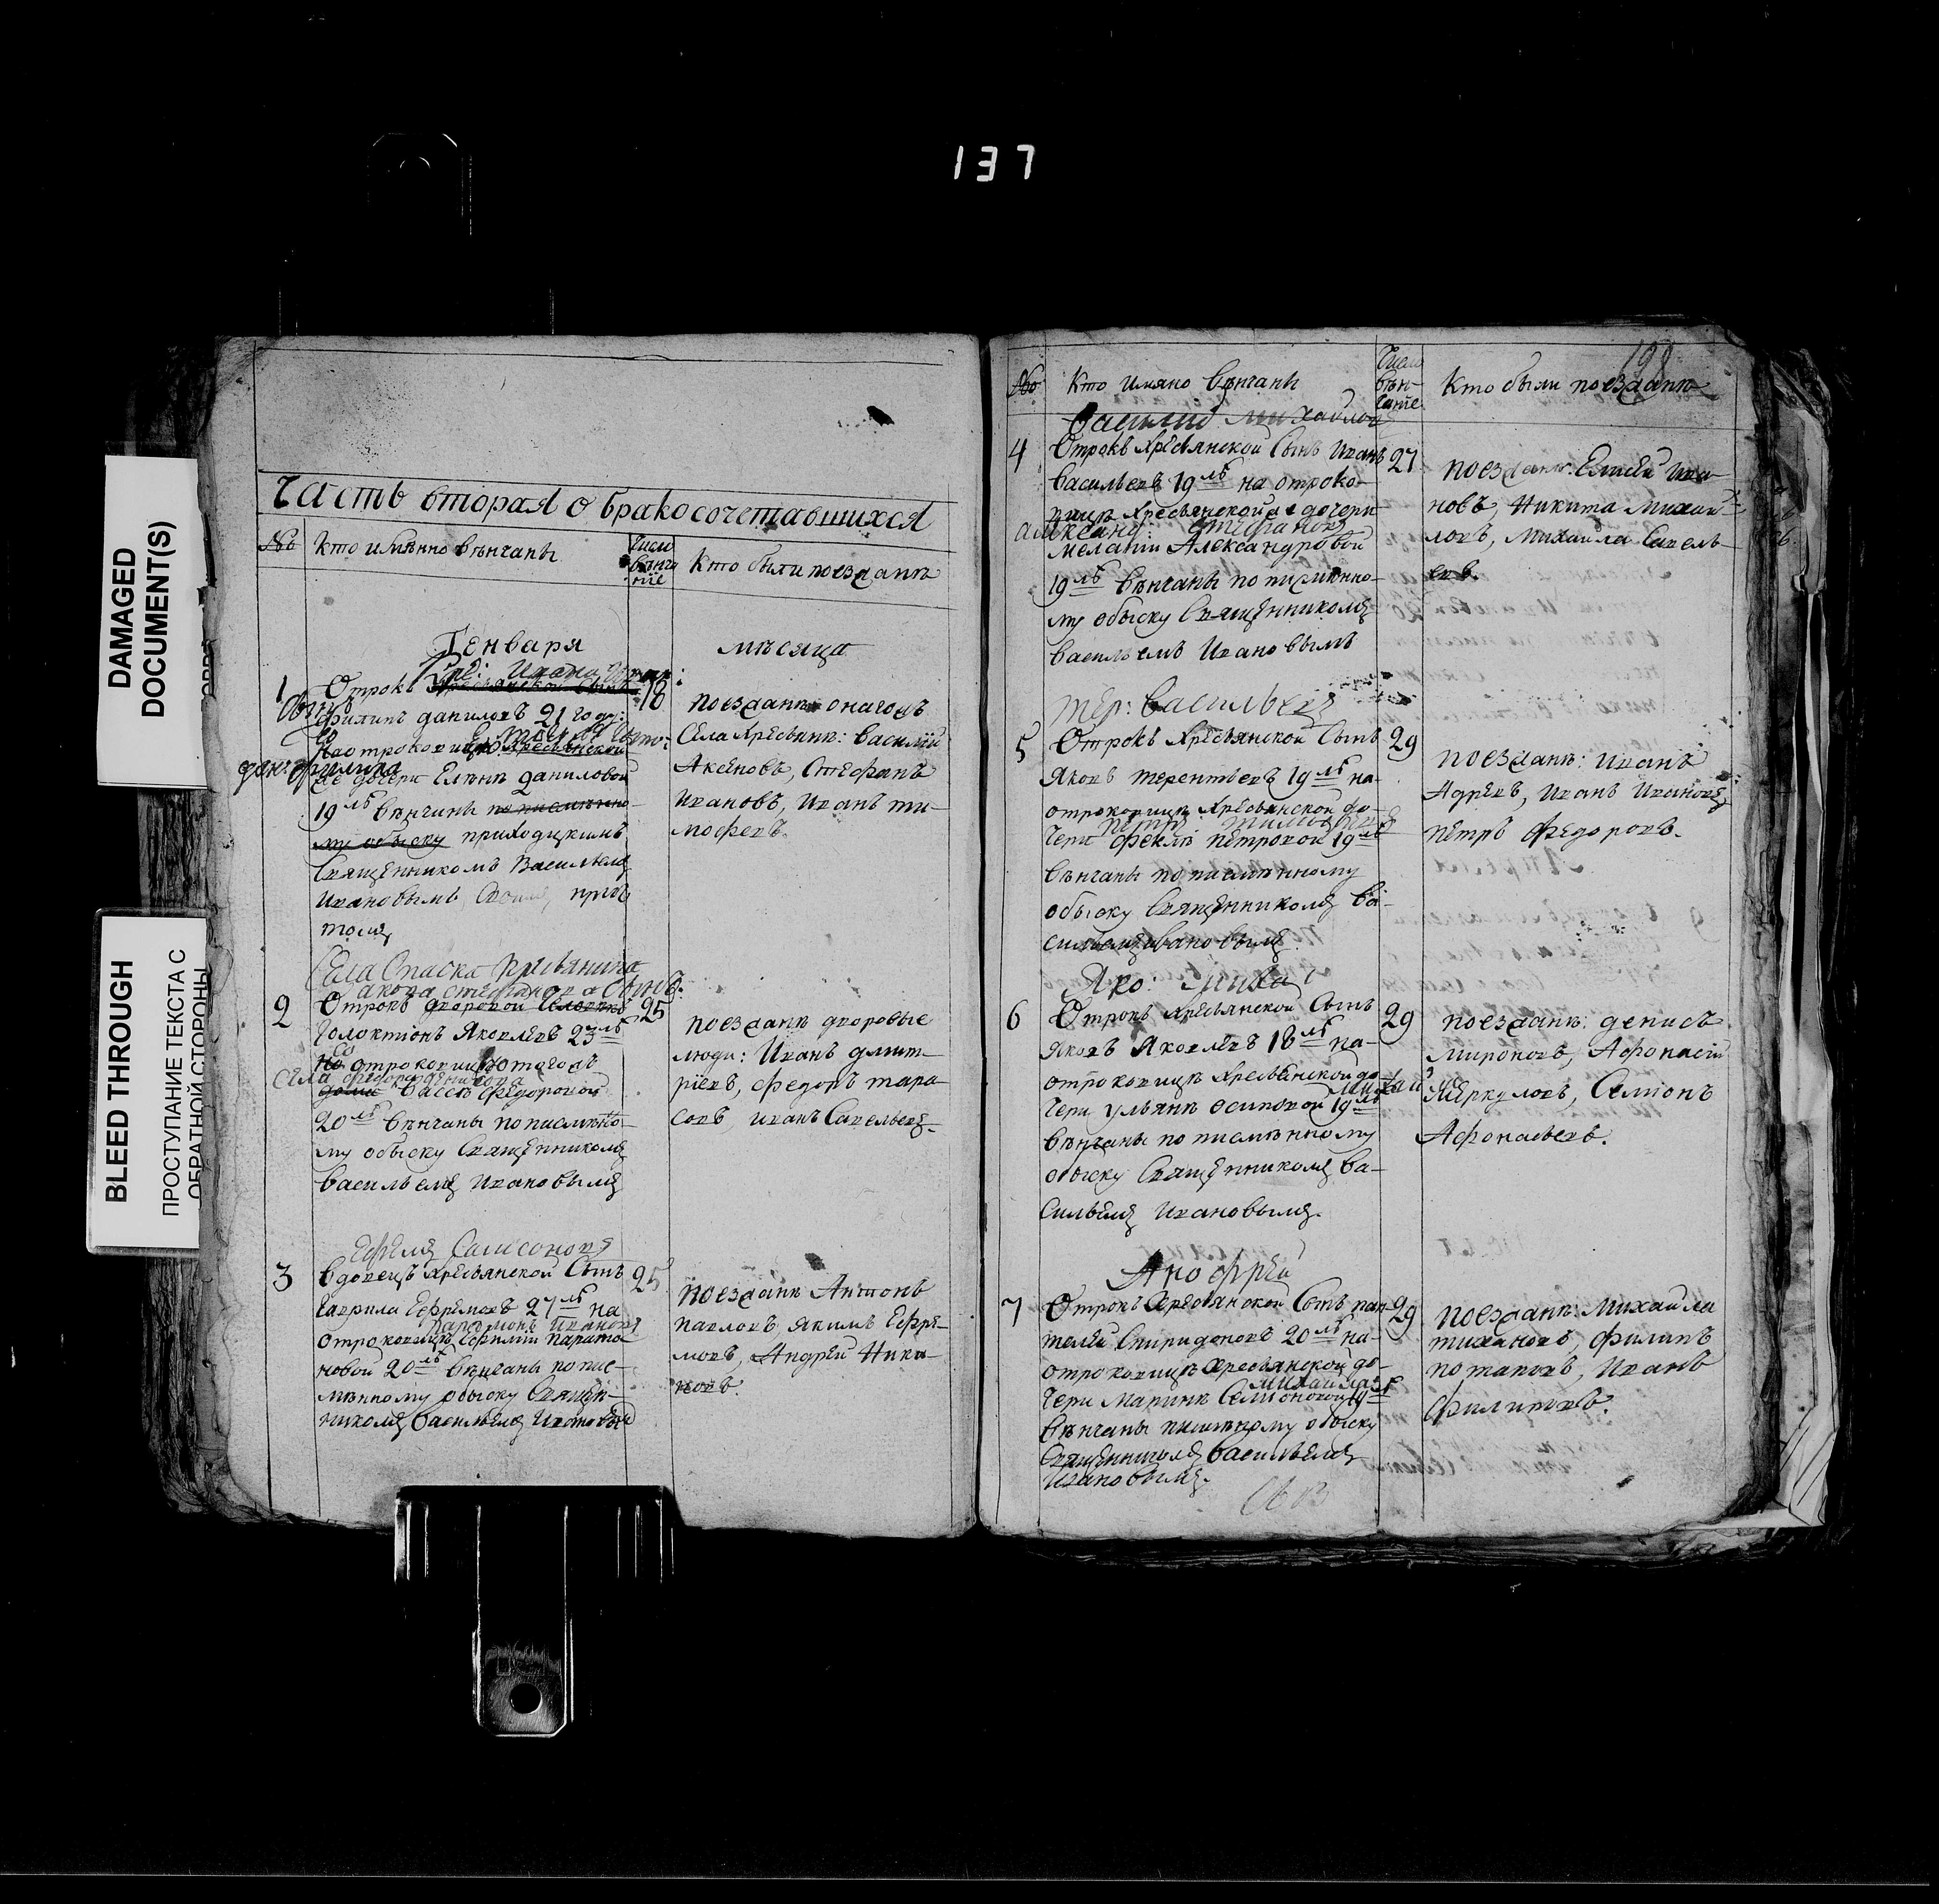 137
DAMAGED
DOCUMENT(S)
BLEED THROUGH
ПРОСТУПАНИЕ ТЕКСТА С
ОБРАТНОЙ СТОРОНЫ
Часть вторая о бракосочетавшихся
№ Кто имѣнно вѣнчаны Число вѣнча ніе Кто были поезданѣ
Генваря мѣсяца
1 Отрокъ крестьянской сынъ 18
Филипъ даниловъ 21 году
На отроковицѣ крестьянской
дочери Еленѣ даниловой
19 лѣ вѣнчаны по писмѣнно-
му обыску приходцкимъ
Священникомъ Васильемъ
Ивановымъ
поезданѣ оногожъ
Села крестьянѣ: василий
Аксеновъ, Стефанъ
Ивановъ, Иванъ ти-
мофеевъ.
Села Спаска крестьянина
Якова Стефанова сынъ
2 Отрокъ дворовой 25
Голактіонъ Яковлевъ 23 лѣ
На отроковицѣ тогожъ
Села
Васеѣ Федоровой
20 лѣ вѣнчаны по писмѣно-
му обыску Священникомъ
васильемъ Ивановымъ
поезданѣ дворовые
люди: Иванъ дмит-
ріевъ, федоръ тара
совъ, иванъ Савельевъ
Ефремъ Самсоновъ
3 Вдовецъ крестьянской Сынъ 25
Гаврила Ефремовъ 27 лѣ на
Парамонъ Ивановъ
отроковицѣ Ефиміи Парамо
новой 20 лѣ вѣнчаны по пис-
мѣнному обыску Священ-
никомъ Васильемъ Ивановым
поезданѣ Антонъ
павловъ, якимъ Ефре-
мовъ, Андрей Ники-
новъ.
198
№ Кто имяно вѣнчаны Число вѣн- чаніе Кто были поезданѣ
Василий михайлов
4 Отрокъ крестьянской Сынъ Иванъ 27
Васильевъ 19 лѣ на отроко-
вицѣ крестьянской дочери
Александ: Стефановъ
меланіи Александровой
19 лѣ вѣнчаны по писмѣнно-
му обыску Священникомъ
васильемъ Ивановымъ
поезданѣ: Елисей Ива-
новъ, Никита Михай-
ловъ, Михайла Савель-
евъ.
Тер: Васильевъ
5 Отрокъ крестьянской Сынъ 29
Яковъ терентьевъ 19 лѣ на-
отроковицѣ крестьянской до-
чери феклѣ петровой 19 лѣ
вѣнчаны по писмѣнному
обыску Священникомъ ва-
сильемъ ивановымъ
поезданѣ: иванъ
Адреевъ, иванъ Ивановъ
петръ федоровъ.
Яко: Миха
6 Отрокъ крестьянской Сынъ 29
Яковъ Яковлевъ 18 лѣ на-
отроковицѣ крестьянской до-
чери ульянѣ осиповой 19 лѣ
вѣнчаны по писмѣнному
обыску Священникомъ ва-
сильемъ Ивановымъ.
поезданѣ: денисъ
мироновъ, Афонасій
Меркуловъ, Семіонъ
Афонасьевъ.
Анофрей
7 Отрокъ крестьянской Сынъ пан 29
телей Спиридоновъ 20 лѣ на-
отроковицѣ крестьянской до-
чери Маринѣ Семіоновой 19 лѣ
вѣнчаны писмѣному обыску
Священникомъ Васильемъ
Ивановымъ.
поезданѣ: Михайла
тихановъ, филипъ
потаповъ, Иванъ
филиповъ.